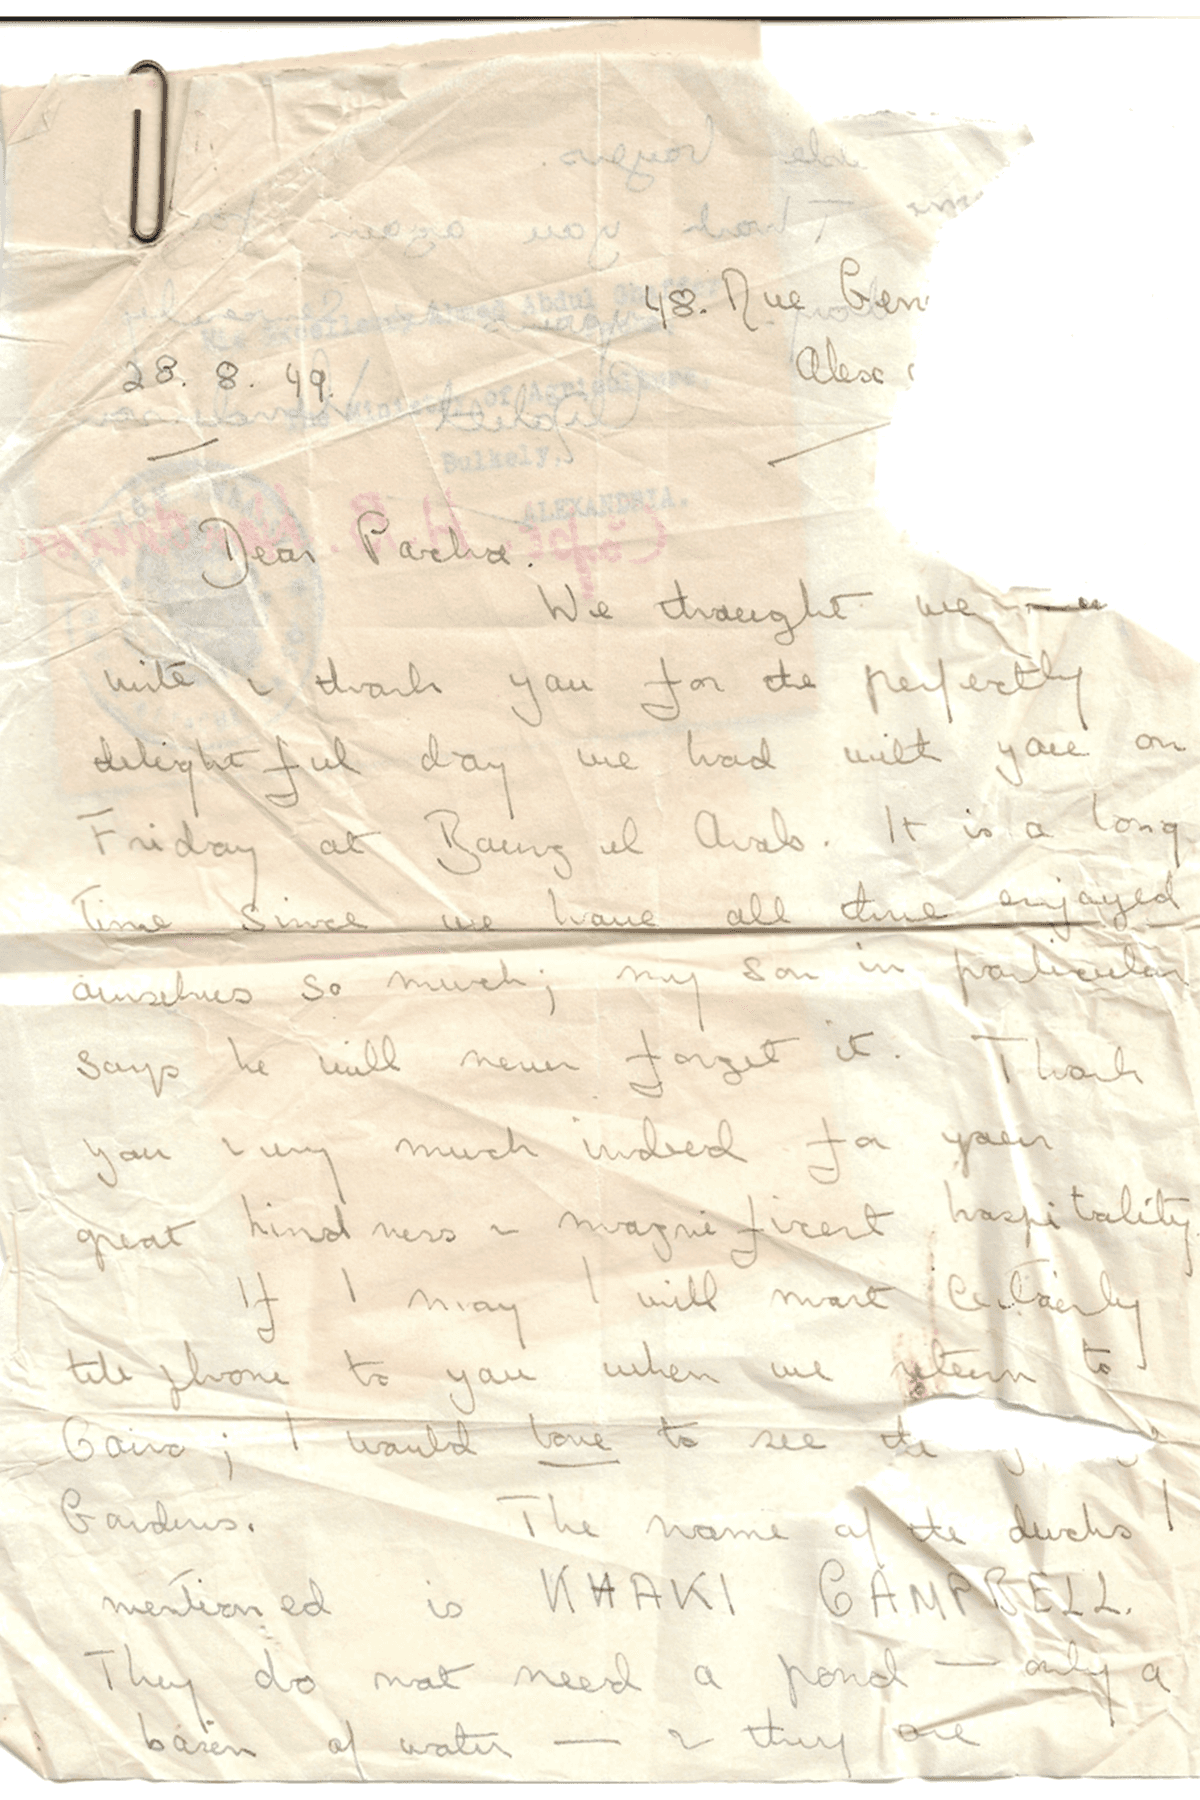 48. Rue Glen
Alex
28. 8. 49.
His Excellency Ahmed Abdul
Minister of Agriculture,
Bulkely.
ALEXANDRIA.
Dear Pacha.
We thought we
write & thank you for the perfectly
delightful day we had with you on
Friday at Bourg el Arab. It is a long
time since we have all three enjoyed
ourselves so much; my son in particular
says he will never forget it. Thank
you very much indeed for your
great kindness & magnificent hospitality.
If I may I will most certainly
telephone to you when we return to
Cairo; I would love to see the
Gardens. The name of the ducks I
mentioned is KHAKI CAMPBELL.
They do not need a pond — only a
basin of water — & they are